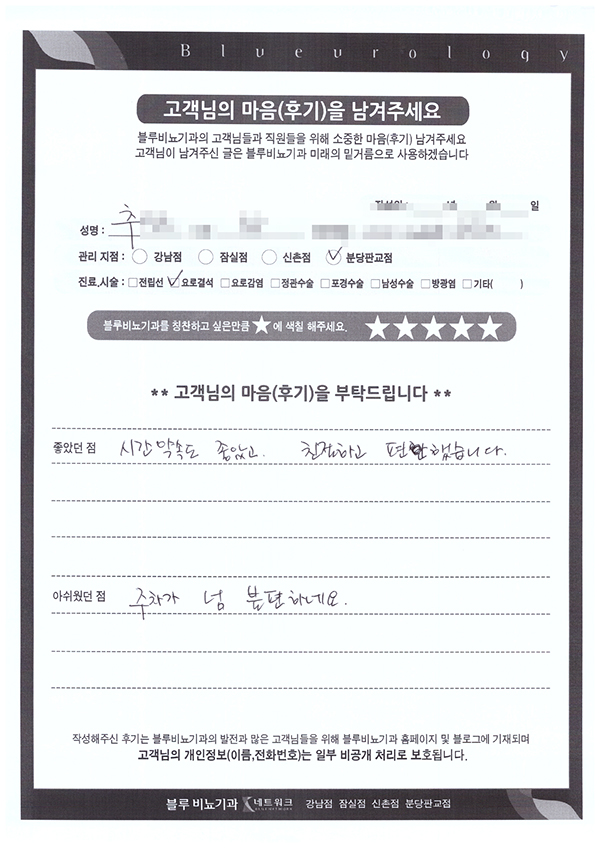 Blueurology
고객님의 마음(후기)을 남겨주세요
블루비뇨기과의 고객님들과 직원들을 위해 소중한 마음(후기) 남겨주세요
고객님이 남겨주신 글은 블루비뇨기과 미래의 밑거름으로 사용하겠습니다
일
성명 : 추
관리 지점 : ○ 강남점 ○ 잠실점 ○ 신촌점 ✓ 분당판교점
진료.시술 : □전립선 ✓요로결석 □요로감염 □정관수술 □포경수술 □남성수술 □방광염 □기타( )
블루비뇨기과를 칭찬하고 싶은만큼 ★에 색칠 해주세요. ★★★★★
** 고객님의 마음(후기)을 부탁드립니다 **
좋았던 점 시간약속도 좋았고. 친절하고 편안했습니다.
아쉬웠던 점 주차가 넘 불편하네요.
작성해주신 후기는 블루비뇨기과의 발전과 많은 고객님들을 위해 블루비뇨기과 홈페이지 및 블로그에 기재되며
고객님의 개인정보(이름,전화번호)는 일부 비공개 처리로 보호됩니다.
블루 비뇨기과 네트워크 강남점 잠실점 신촌점 분당판교점